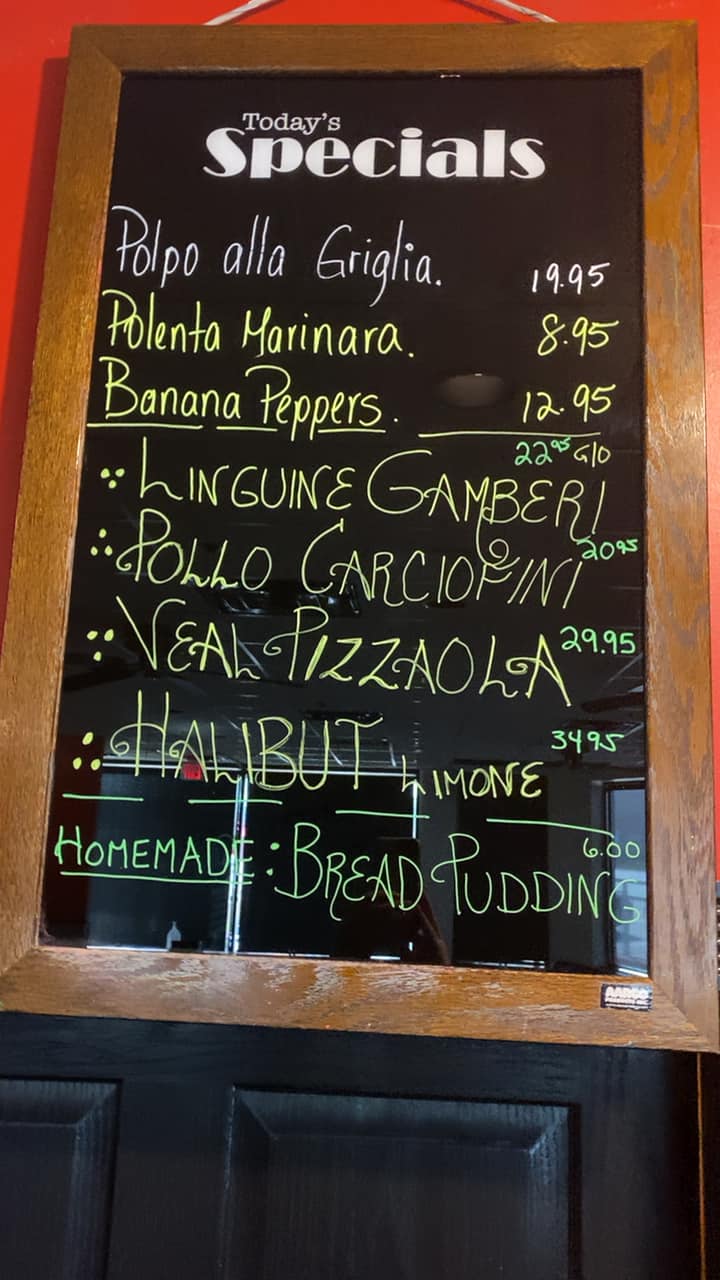 Today's
Specials
Polpo alla Griglia. 19.95
Polenta Marinara. 8.95
Banana Peppers. 12.95
22⁹⁵ G/O
LINGUINE GAMBERI
POLLO CARCIOFINI 20⁹⁵
VEAL PIZZAOLA 29.95
HALIBUT LIMONE 3495
HOMEMADE: BREAD PUDDING 6.00
AARCO